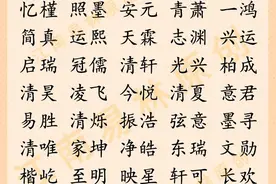 忆槿 照墨 安元 青萧 一鸿
简真 运熙 天霖 志渊 兴运
启瑞 冠儒 清轩 光兴 柏成
清昊 凌飞 今悦 清夏 意君
易胜 清烁 振浩 弦意 墨寻
清唯 家坤 净皓 东瑞 文勋
楷屹 至明 映星 轩可 长欢